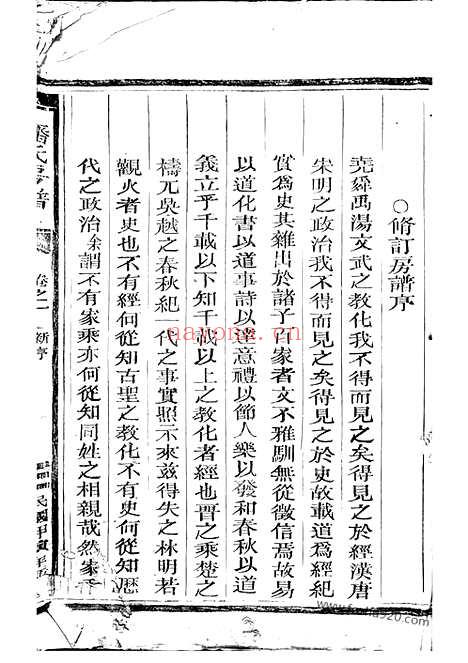 ○脩訂房譜序
堯舜禹湯文武之教化我不得而見之矣得見之於經漢唐
宋明之政治我不得而見之矣得見之於史故載道為經紀
實為史其雜出於諸子百家者文不雅馴無從徵信焉故易
以道化書以道事詩以達意禮以節人樂以發和春秋以道
義立乎千載以下知千載以上之教化者經也晋之乘楚之
檮兀吳越之春秋紀一代之事實照示來兹得失之林明若
觀火者史也不有經何從知古聖之教化不有史何從知歷
代之政治余謂不有家乘亦何從知同姓之相親哉然家
潘氏房譜 卷之一 新序
民國甲寅年
nayona.cn
www.zupu120.com